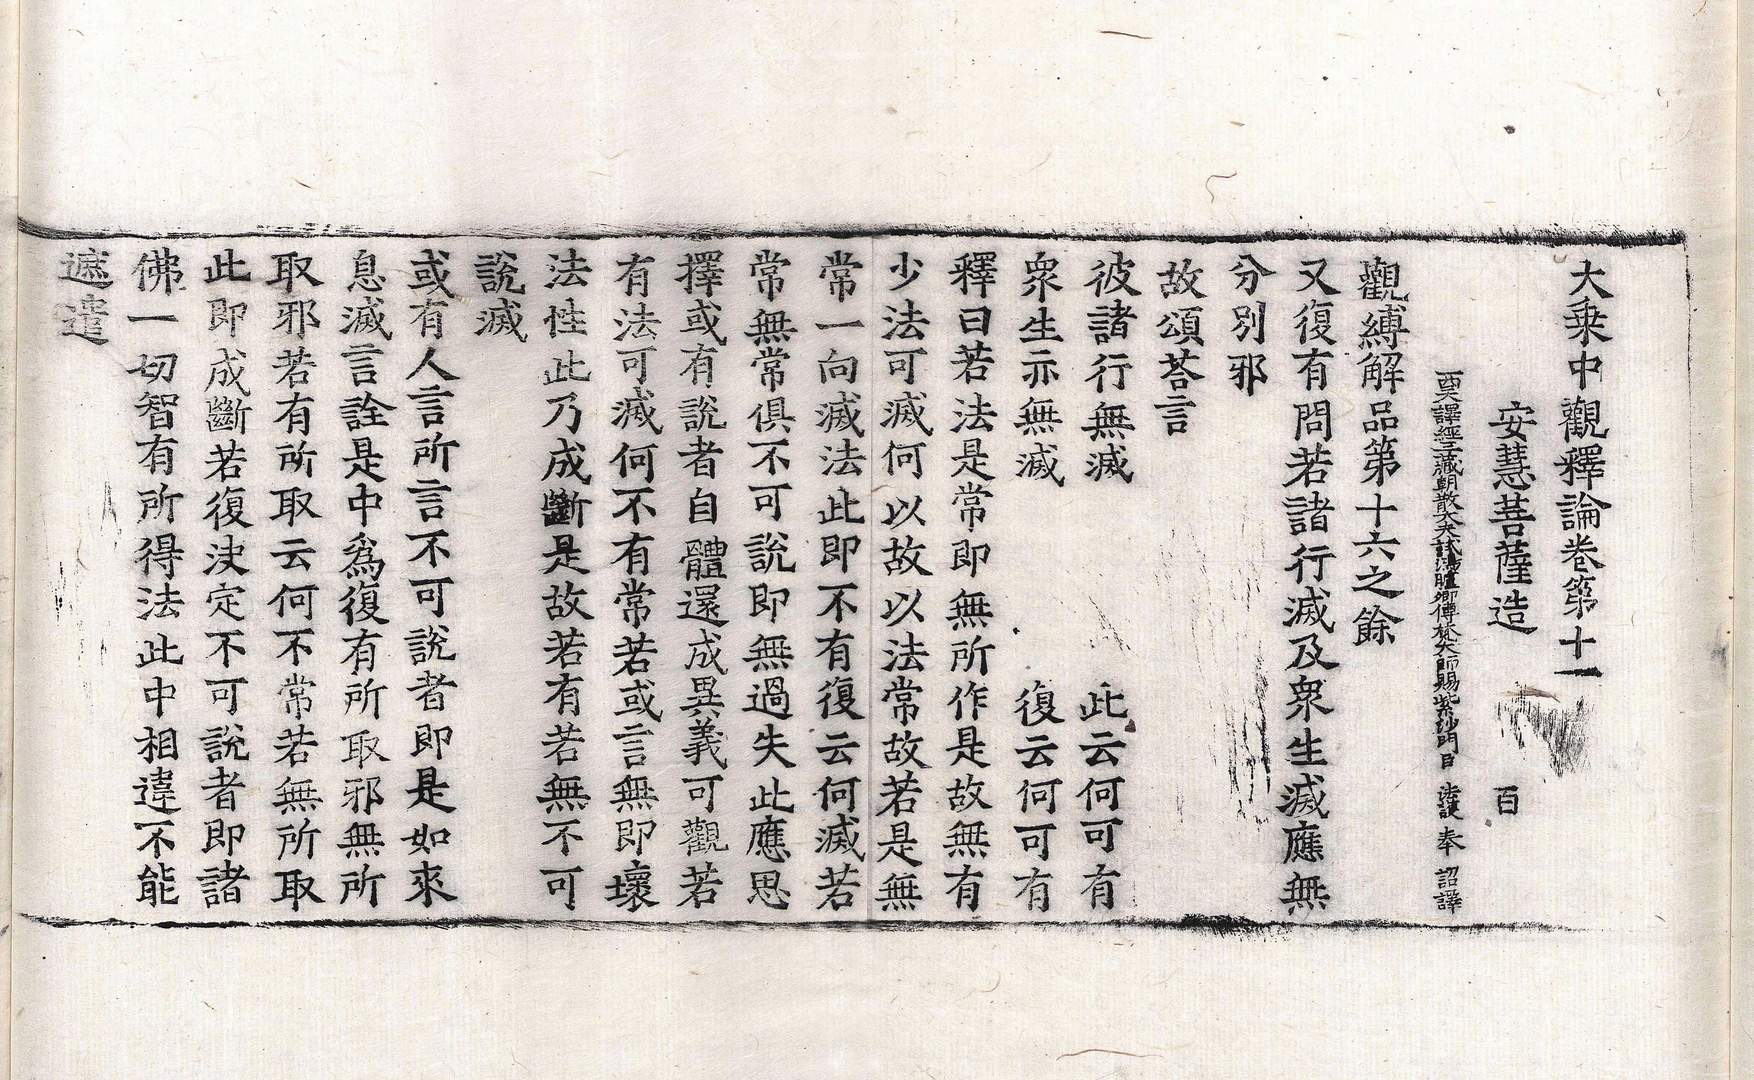 大乗中觀釋論卷第十一
安慧菩薩造 百
西天譯經三藏朝散大夫試鴻臚卿傳梵大師賜紫沙門臣 法護 奉 詔譯
觀縛解品第十六之餘
又復有問若諸行滅及衆生滅應無
分別邪
故頌荅言
彼諸行無滅 此云何可有
衆生亦無滅 復云何可有
釋曰若法是常即無所作是故無有
少法可滅何以故以法常故若是無
常一向滅法此即不有復云何滅若
常無常俱不可說即無過失此應思
擇或有說者自體還成異義可觀若
有法可滅何不有常若或言無即壞
法性此乃成斷是故若有若無不可
說滅
或有人言所言不可說者即是如來
息滅言詮是中爲復有所取邪無所
取邪若有所取云何不常若無所取
此即成斷若復決定不可說者即諸
佛一切智有所得法此中相違不能
遮遣